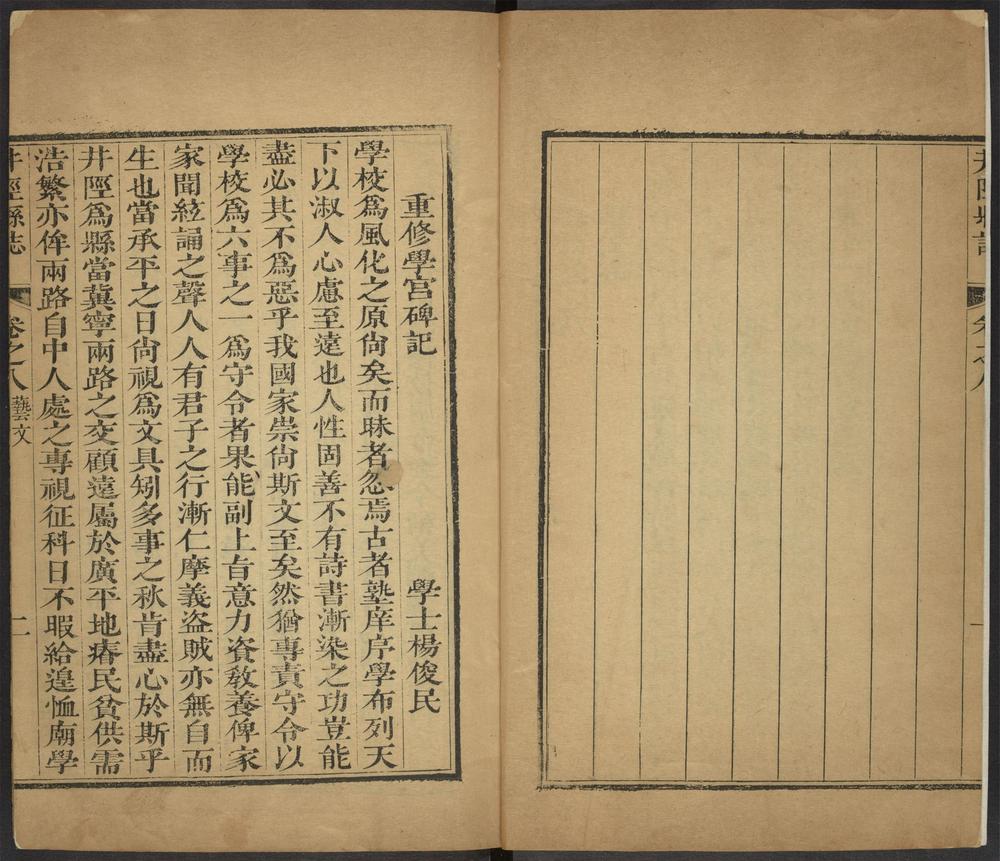 井陘縣誌
卷之八
一
重修學宮碑記
學士楊俊民
學校為風化之原尙矣而昧者忽焉古者塾庠序學布列天
下以淑人心慮至遠也人性固善不有詩書漸染之功豈能
盡必其不為惡乎我國家崇尙斯文至矣然猶專責守令以
學校為六事之一為守令者果能副上旨意力資敎養俾家
家聞絃誦之聲人人有君子之行漸仁摩義盜賊亦無自而
生也當承平之日尙視為文具矧多事之秋肯盡心於斯乎
井陘為縣當冀寧兩路之交顧遠屬於廣平地瘠民貧供需
浩繁亦侔兩路自中人處之專視征科日不暇給遑恤廟學
井陘縣誌
卷之八
藝文
二